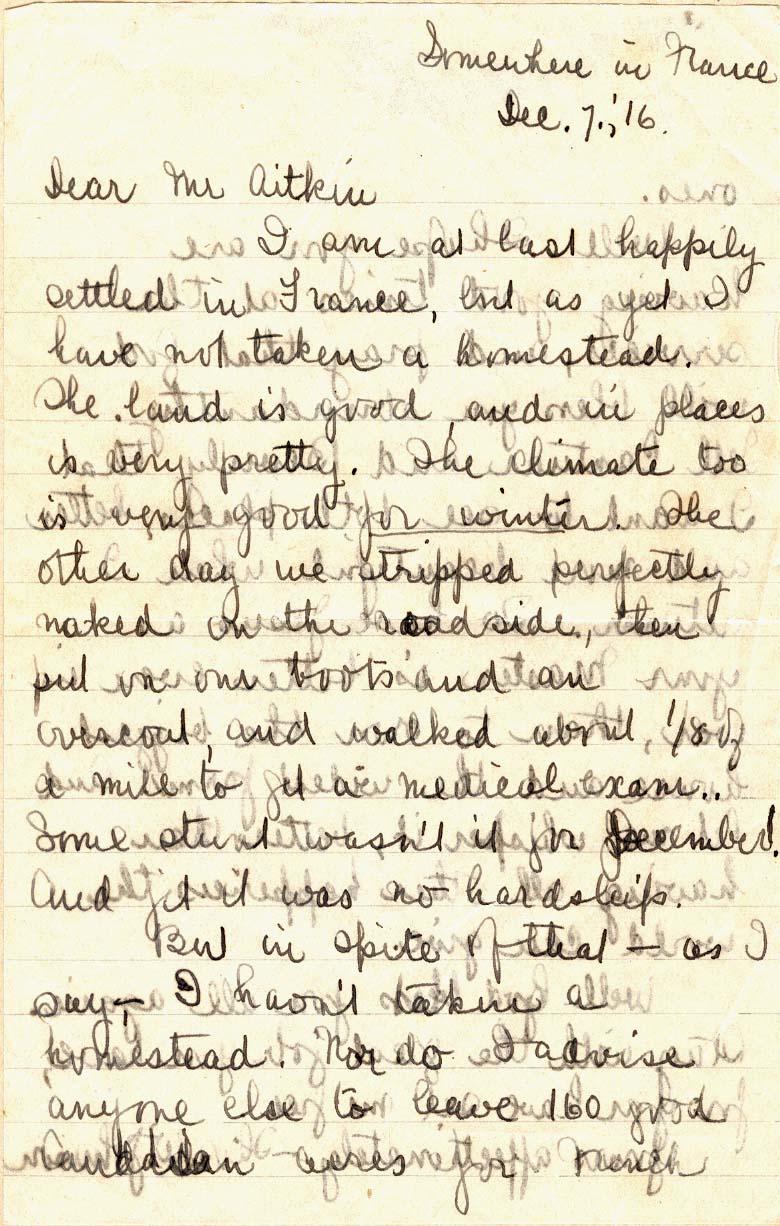 Somewhere in France
Dec. 7., '16.
Dear Mr Aitkin
I am at last happily
settled in France, but as yet I
have not taken a homestead.
The land is good, and in places
is very pretty. The climate too
is very good for winter. The
other day we stripped perfectly
naked on the roadside, then
put on our boots and an
overcoat, and walked about 1/8 of
a mile to get a medical exam..
Some stunt wasn't it for December!
And yet it was no hardship.
But in spite of that — as I
say, — I havn't taken a
homestead. Nor do I advise
anyone else to leave 160 good
Canadian acres for